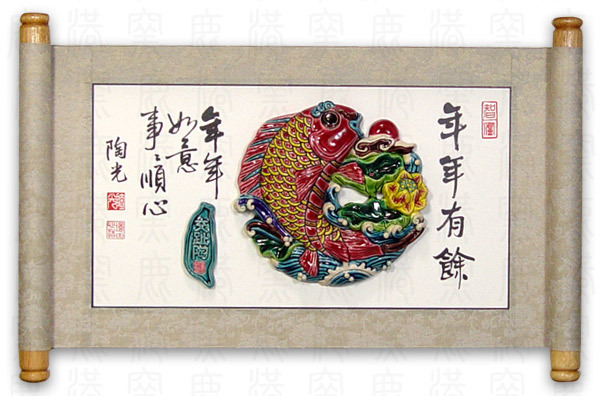 年年有餘
年年
如意
事〻順心
陶光
交趾陶
鹿港窯